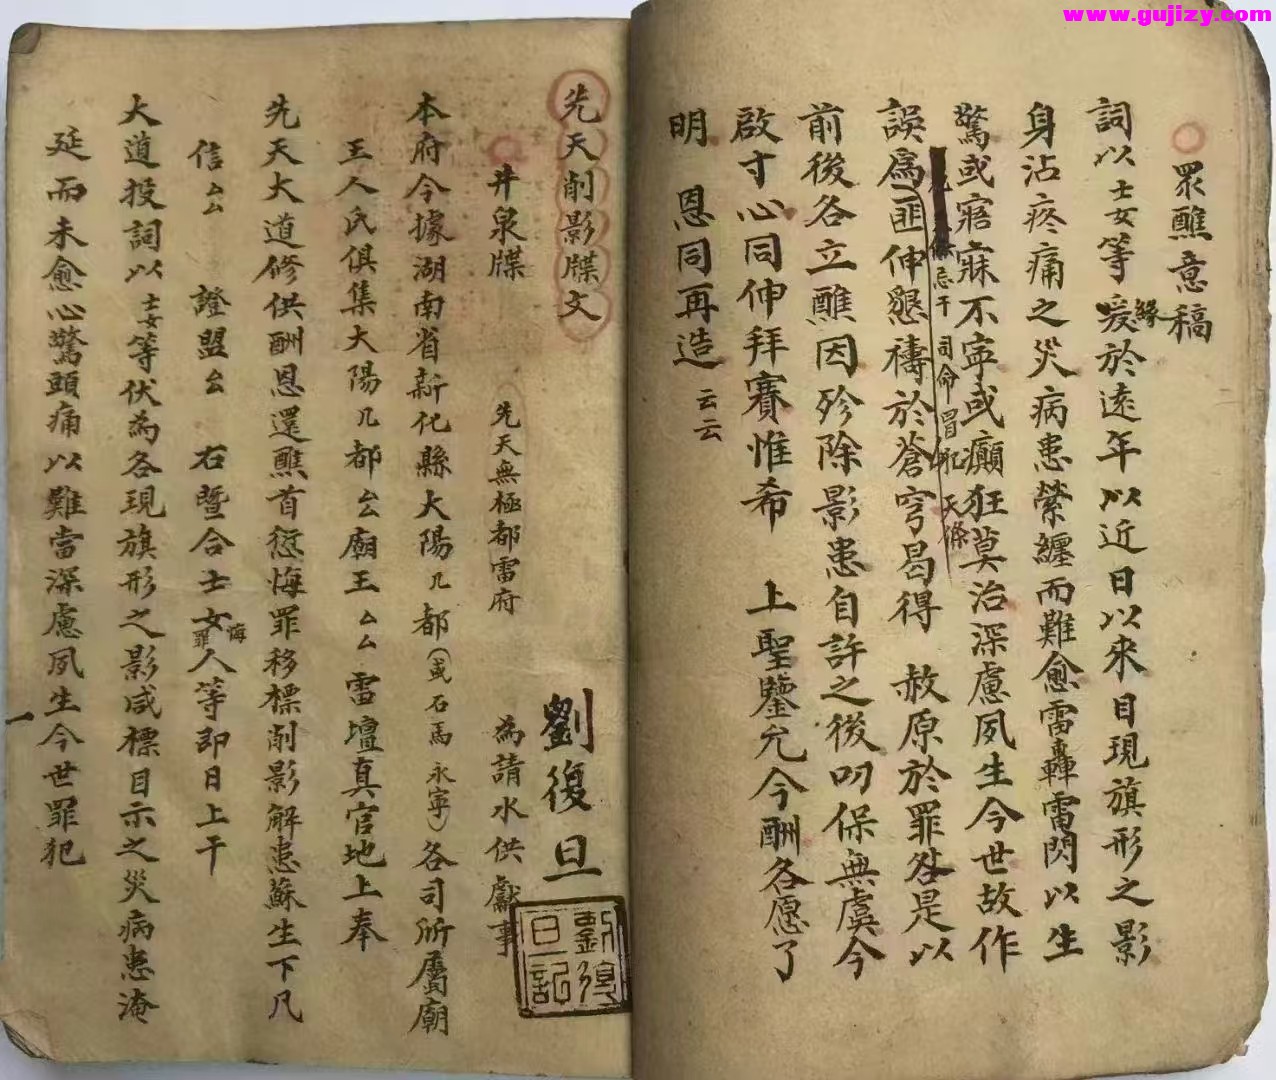 www.gujizy.com
眾醮意稿
詞以士女等爰緣於遠年以近日以來目現旗形之影
身沾疼痛之災病患縈纏而難愈雷轟電閃以生
驚或寤寐不寧或癲狂莫治深慮夙生今世故作
忌干司命冒犯天條
誤爲匪伸懇禱於蒼穹曷得 赦原於罪咎是以
前後各立醮因殄除影患自許之後叨保無虞今
啟寸心同伸拜賽惟希 上聖鑒允今酬各愿了
明 恩同再造 云云
先天削影牒文
劉復旦
劉復旦記
井泉牒 先天無極都雷府 為請水供獻事
本府今據湖南省新化縣大陽几都(或石馬永寧)各司所屬廟
王人氏俱集大陽几都厶廟王厶厶雷壇真官地上奉
先天大道修供酬恩還醮首愆悔罪移標削影解患蘇生下凡
信厶厶 證盟厶 右暨合士女悔罪人等即日上干
大道投詞以士女等伏為各現旗形之影咸標目示之災病患淹
延而未愈心驚頭痛以難當深慮夙生今世罪犯
一